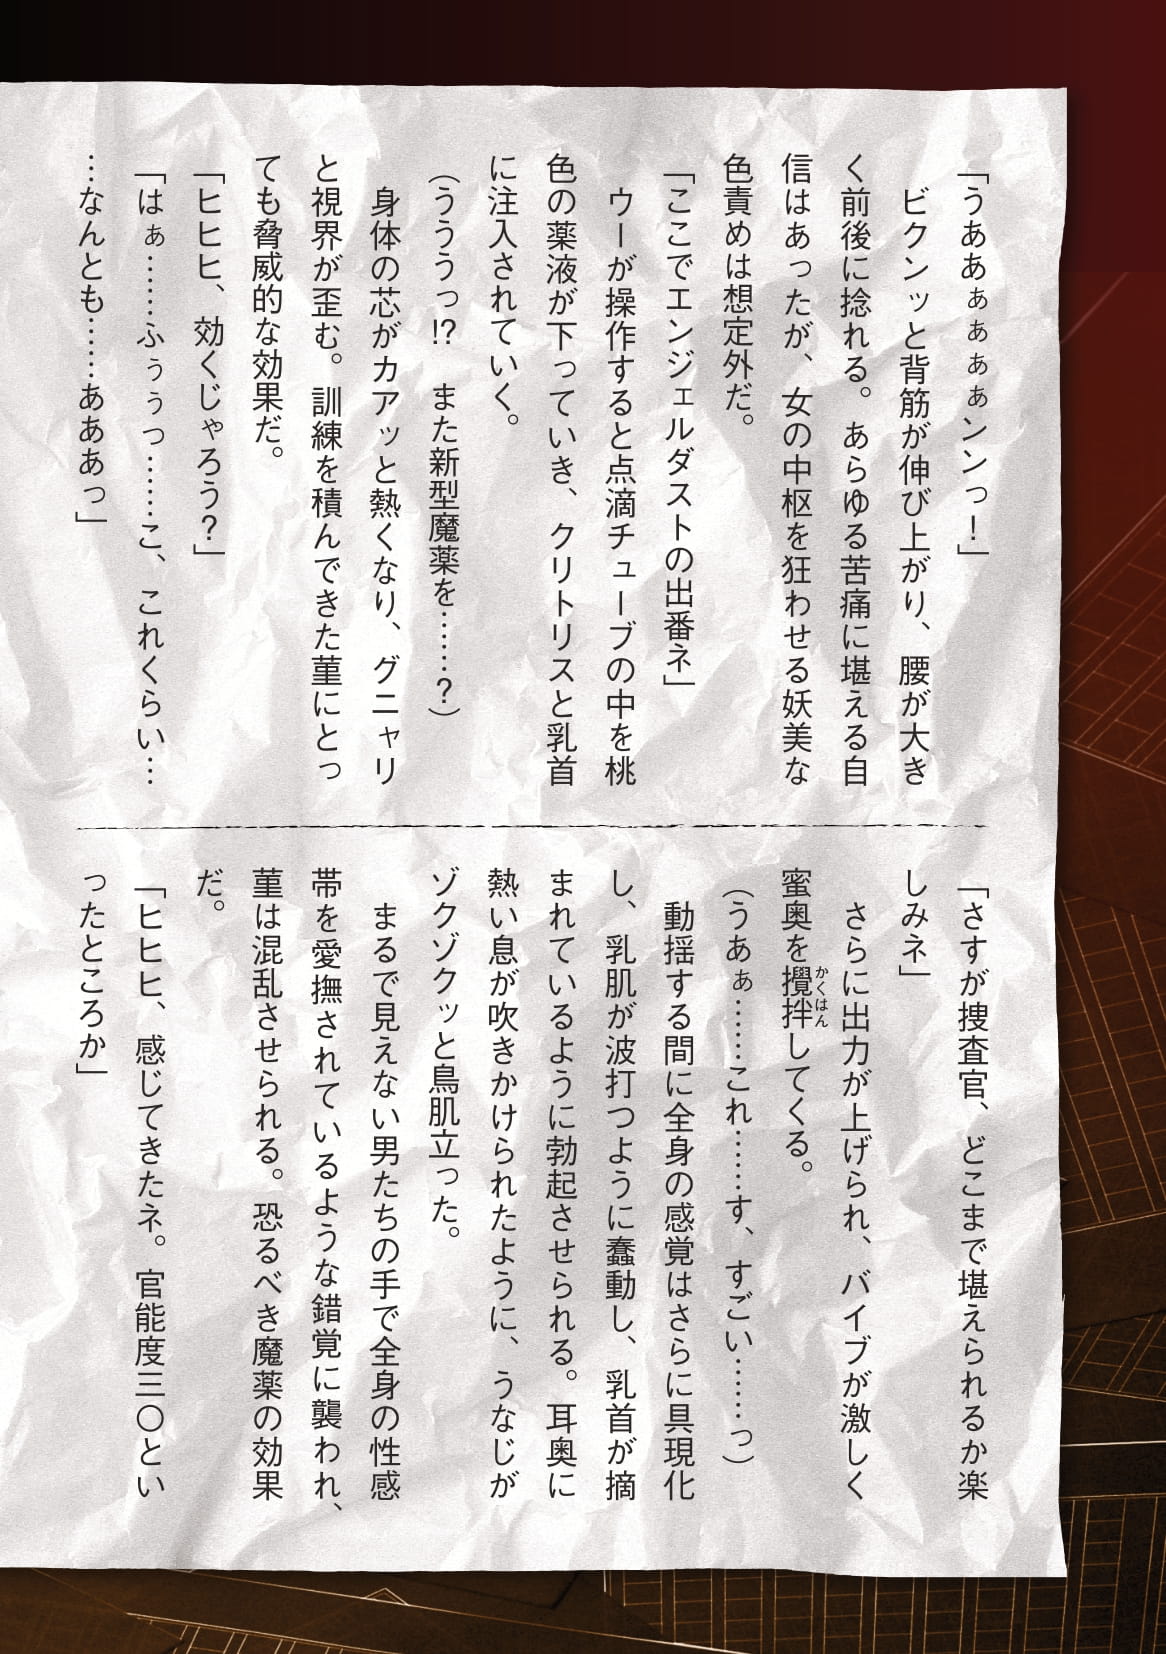 「うああぁぁぁぁンンっ！」
　ビクンッと背筋が伸び上がり、腰が大き
く前後に捻れる。あらゆる苦痛に堪える自
信はあったが、女の中枢を狂わせる妖美な
色責めは想定外だ。
「ここでエンジェルダストの出番ネ」
　ウーが操作すると点滴チューブの中を桃
色の薬液が下っていき、クリトリスと乳首
に注入されていく。
（うううっ!?　また新型魔薬を……？）
　身体の芯がカアッと熱くなり、グニャリ
と視界が歪む。訓練を積んできた菫にとっ
ても脅威的な効果だ。
「ヒヒヒ、効くじゃろう？」
「はぁ……ふぅぅっ……こ、これくらい…
…なんとも……あああっ」
「さすが捜査官、どこまで堪えられるか楽
しみネ」
　さらに出力が上げられ、バイブが激しく
蜜奥を攪拌かくはんしてくる。
（うあぁ……これ……す、すごい……っ）
　動揺する間に全身の感覚はさらに具現化
し、乳肌が波打つように蠢動し、乳首が摘
まれているように勃起させられる。耳奥に
熱い息が吹きかけられたように、うなじが
ゾクゾクッと鳥肌立った。
　まるで見えない男たちの手で全身の性感
帯を愛撫されているような錯覚に襲われ、
菫は混乱させられる。恐るべき魔薬の効果
だ。
「ヒヒヒ、感じてきたネ。官能度三〇とい
ったところか」